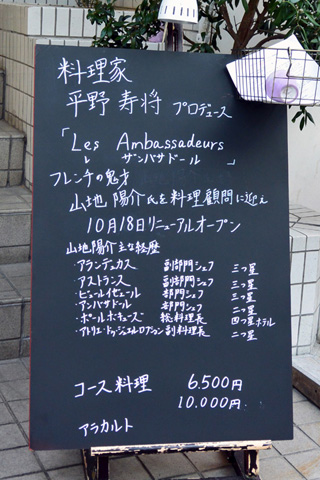 料理家
平野 寿将 プロデュース
「Les Ambassadeurs
レ ザンバサドール 」
フレンチの鬼才
山地 陽介氏を料理顧問に迎え
10月18日リニューアルオープン
山地陽介主な経歴
・アランデュカス 副部門シェフ 三つ星
・アストランス 副部門シェフ 三つ星
・ピュールイセュール 部門シェフ 三つ星
・アンバサドール 部門シェフ 二つ星
・ポールボキューズ 総料理長 四つ星ホテル
・アトリエ・ドゥ・ジョエルロブション 副料理長 二つ星
コース料理 6.500円
10.000円
アラカルト